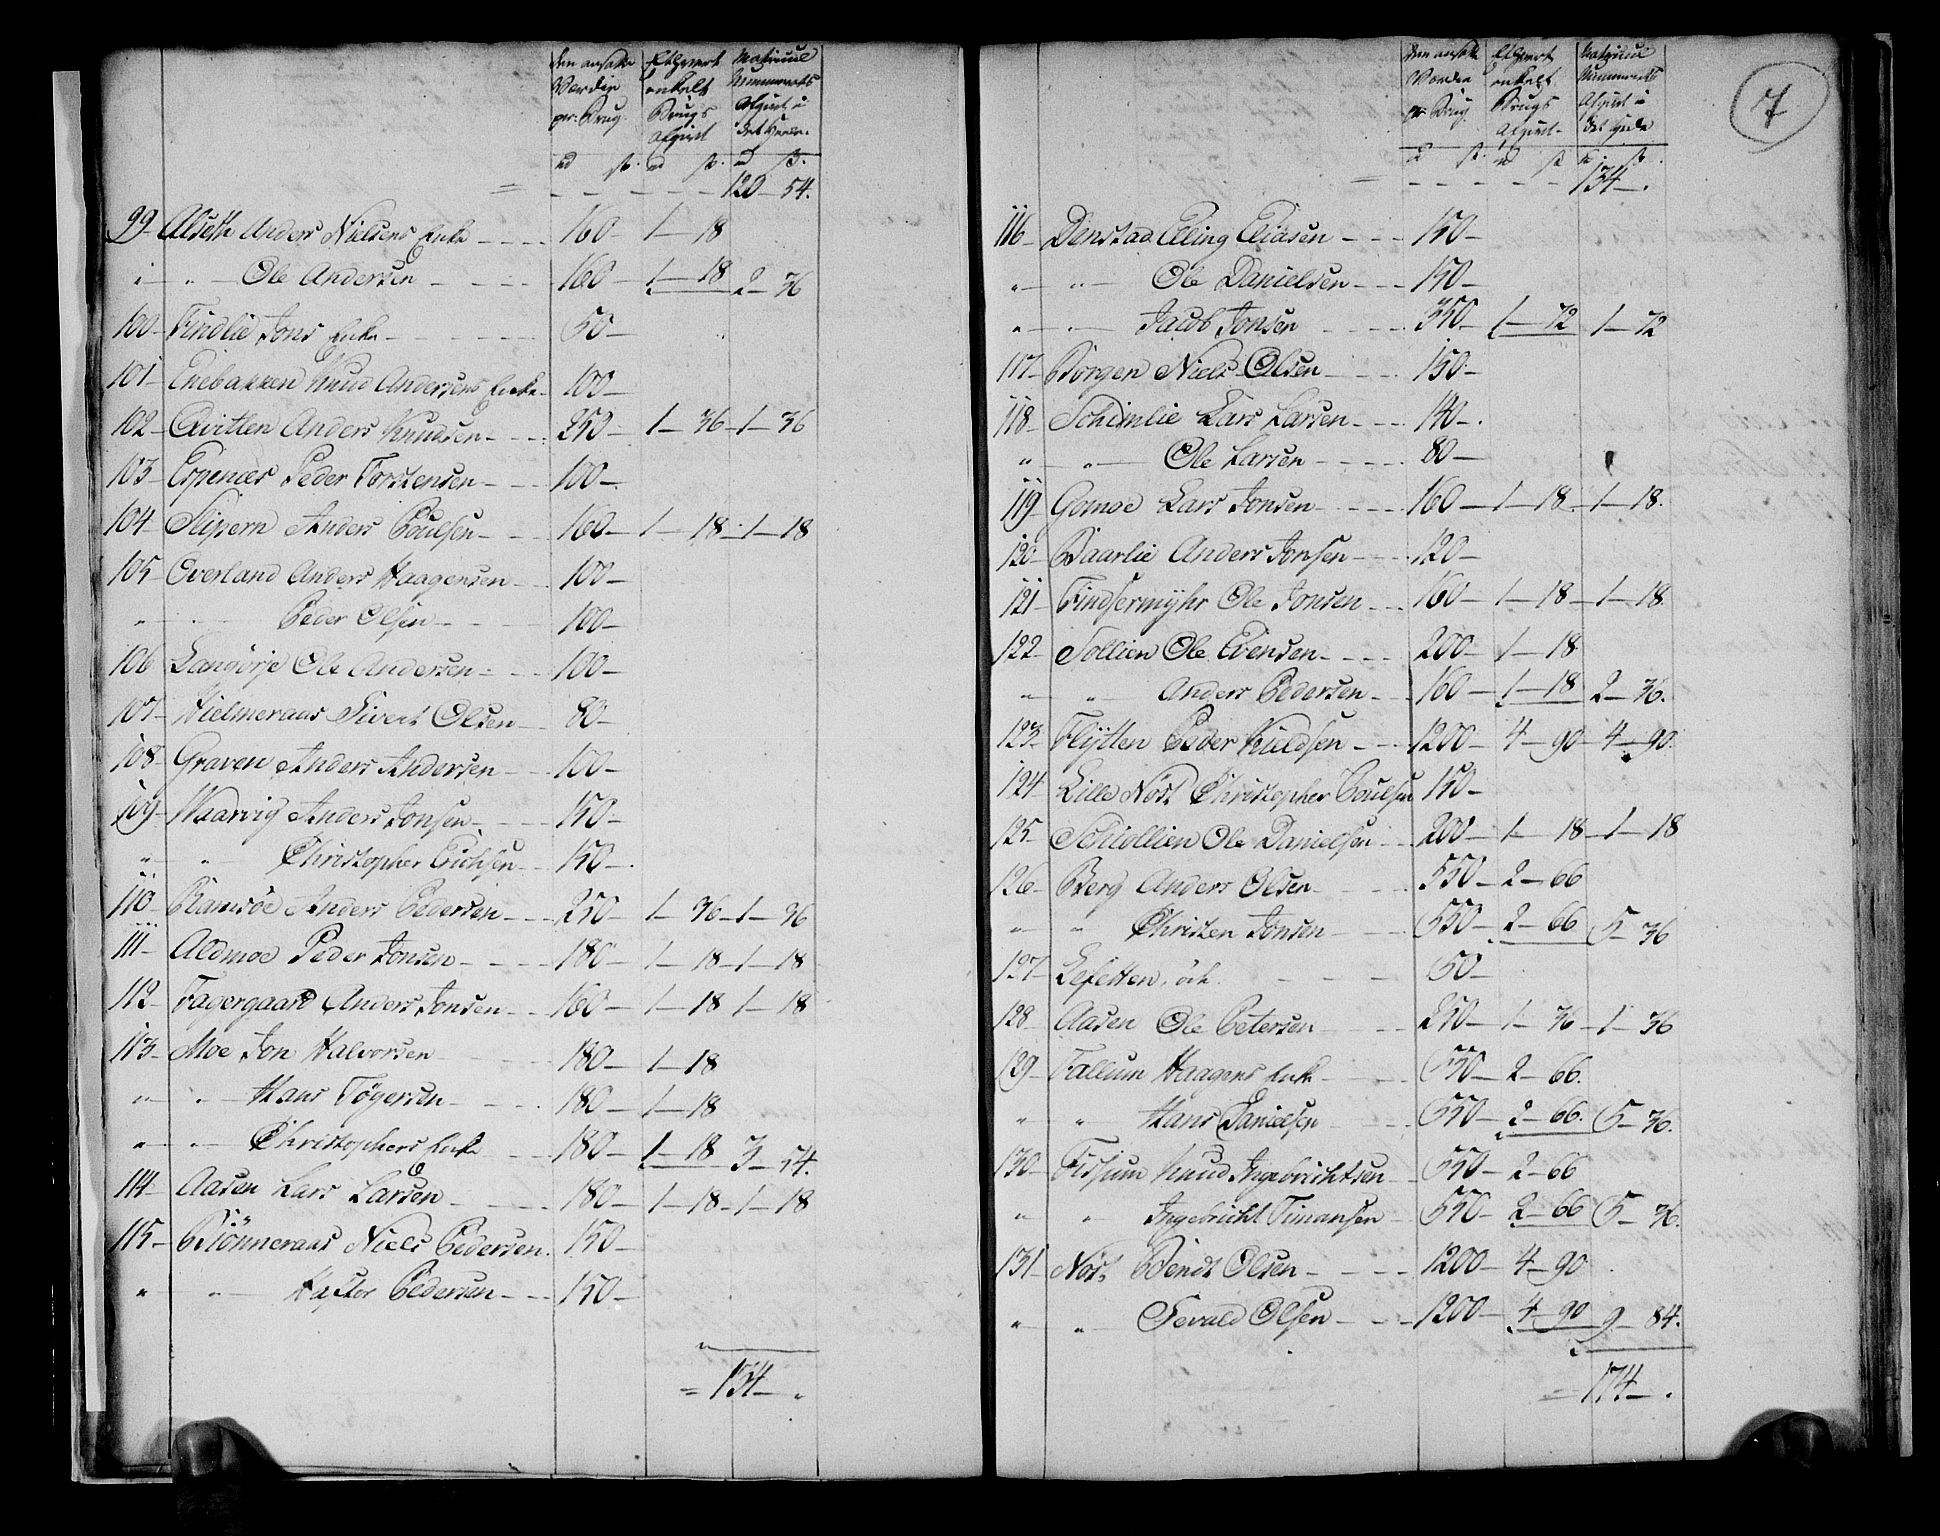 den ansatte Værdie pr. Brug | Ethvert enkelt Brugs Afgivt | Matricul Nummerets Afgivt i det Heele.
rd ß. rd ß. rd ß.
= - - - - - 120 - 54.
99 - Alseth Anders Nielsens Enke - - - 160 - 1 - 18
" - " - Ole Andersen - - - 160 - 1 - 18 2 - 36
100 - Findlie Jons Enke - - - 50 -
101 - Enebakken Knud Andersens Enke - 100 -
102 - Qvitlen Anders Knudsen - - - 250 - 1 - 36 - 1 - 36
103 - Espenæs Peder Torstensen - - - 100 -
104 - Slipern Anders Poulsen - - - 160 - 1 - 18 - 1 - 18
105 - Overland Anders Haagensen - - 100 -
" - Peder Olsen - - - 100 -
106 Langørje Ole Andersen - - 100 -
107 - Hielmeraas Sivert Olsen - - 80 -
108 - Graven Anders Andersen - - 100 -
109 - Waarvig Anders Jonsen - - - 150 -
" " Christopher Erichsen - - 150 -
110 - Ramsøe Anders Pedersen - - - 250 - 1 - 36 - 1 - 36
111 - Aldmoe Peder Jonsen - - - 180 - 1 - 18 - 1 - 18
112 - Fagergaard Anders Jonsen - - 160 - 1 - 18 1 - 18
113 - Moe Jon Halvorsen - - - 180 - 1 - 18
" - " - Hans Tøgersen - - - 180 - 1 - 18
" - " - Christophers Enke - - 180 - 1 - 18 3 - 54.
114 - Aasen Lars Larsen - - - 180 - 1 - 18 - 1 - 18
115 - Brønneraas Niels Pedersen. 150 -
" " Haftor Pedersen - - - 150 -
= 134 - "
7
den ansatte Værdie pr. Brug. | Ethvert enkelt Brugs Afgivt - | Matricul Nummerets Afgivt i det Heele
rd ß. rd ß rd ß.
= - - - - - 134 - .
116 - Denstad Elling Eliasen - - - 150 -
" - " - Ole Danielsen - - - 150 -
" - " - Jacob Jonsen - - - 350 - 1 - 72 1 - 72
117 - Borgen Niels Olsen - - - 150 -
118 - Schimlie Lars Larsen - - - 140 - .
" " - Ole Larsen - - - 80 -
119 - Gomoe Lars Jonsen - - - 160 - 1 - 18 - 1 - 18.
120 - Baarlie Anders Jonsen - - - 120 -
121 - Findsermyhr Ole Jonsen - - - 160 - 1 - 18 - 1 - 18.
122 - Sollien Ole Evensen - - - 200 - 1 - 18
" " Anders Pedersen - - 160 - 1 - 18 2 - 36.
123 - Flytten Peder Kieldsen - - - 1200 - 4 - 90 - 4 - 90
124 Lille Nøst Christopher Poulsen 150 -
125 - Schiollien Ole Danielsen - - 200 - 1 - 18 - 1 - 18
126 - Berg Anders Olsen - - - 550 - 2 - 66
" " Christen Jonsen - - - 550 - 2 - 66 5 - 36
127 - øde. - - - 50 -
128 - Aasen Ole Petersen - - 250 - 1 - 36 - 1 - 36
129 - Fallum Haagens Enke - - - 550 - 2 - 66.
" " Hans Danielsen - - - 550 - 2 - 66. 5 - 36.
130 - Fossum Knud Ingebrichtsen - 550 - 2 - 66
" " Ingebricht Timansen - 550 - 2 - 66 5 - 36.
131 Nøst Bendt Olsen - - - 1200 - 4 - 90
" " Sevald Olsen - - - 1200 - 4 - 90 9 - 84.
= 174 - .